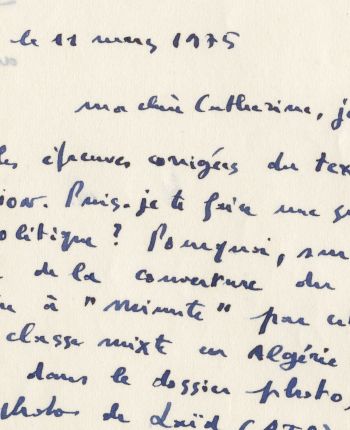 le 11 mars 1975
ma chère Catherine, je
les épreuves corrigées du tex
Puis-je te faire une su
olitique ? Pourquoi, sur
de la couverture du
à "minute" par
classe mixte en Algérie
dans le dossier photo,
photos de Laïd